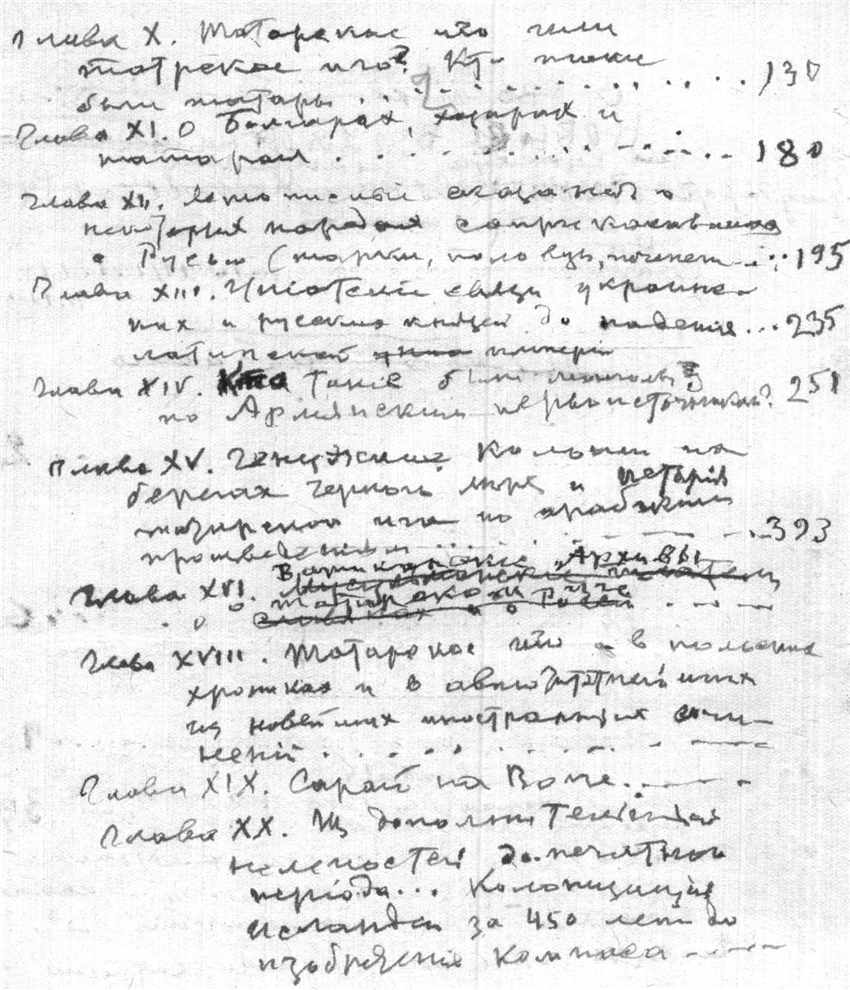 Глава X. Татарское иго или
татрское иго? Кто такие
были татары . . . . . . . . . . . 130
Глава XI. О Болгарах, хазарах и
татарах . . . . . . . . . . . 180
Глава XII. Летописный сказаній о
некоторых народах соприкасавшихся
с Русью (торки, половцы, печенеги ... 195
Глава XIII. связи украинс-
ких и русских князей до падения ... 235
латинской империи
Глава XIV. Кто Такіе были монголы
по Армянским первоисточникам? 251
Глава XV. Генуэзские Колонии на
берегах Черного моря и исторія
татарского ига по арабским
произведеніям . . . . . . . 393
Глава XVI. Ватиканские Архивы
о татарском
Глава XVIII. Татарское иго в польских
хрониках и в
из новейших иностранных сочи-
неній . . . . . . . . .
Глава XIX. Сарай на Волге. . . .
Глава XX. Из дополнительных
нелепостей до-печатного
періода... Колонизація
Исландіи за 450 лет до
изобретенія компаса - - - -